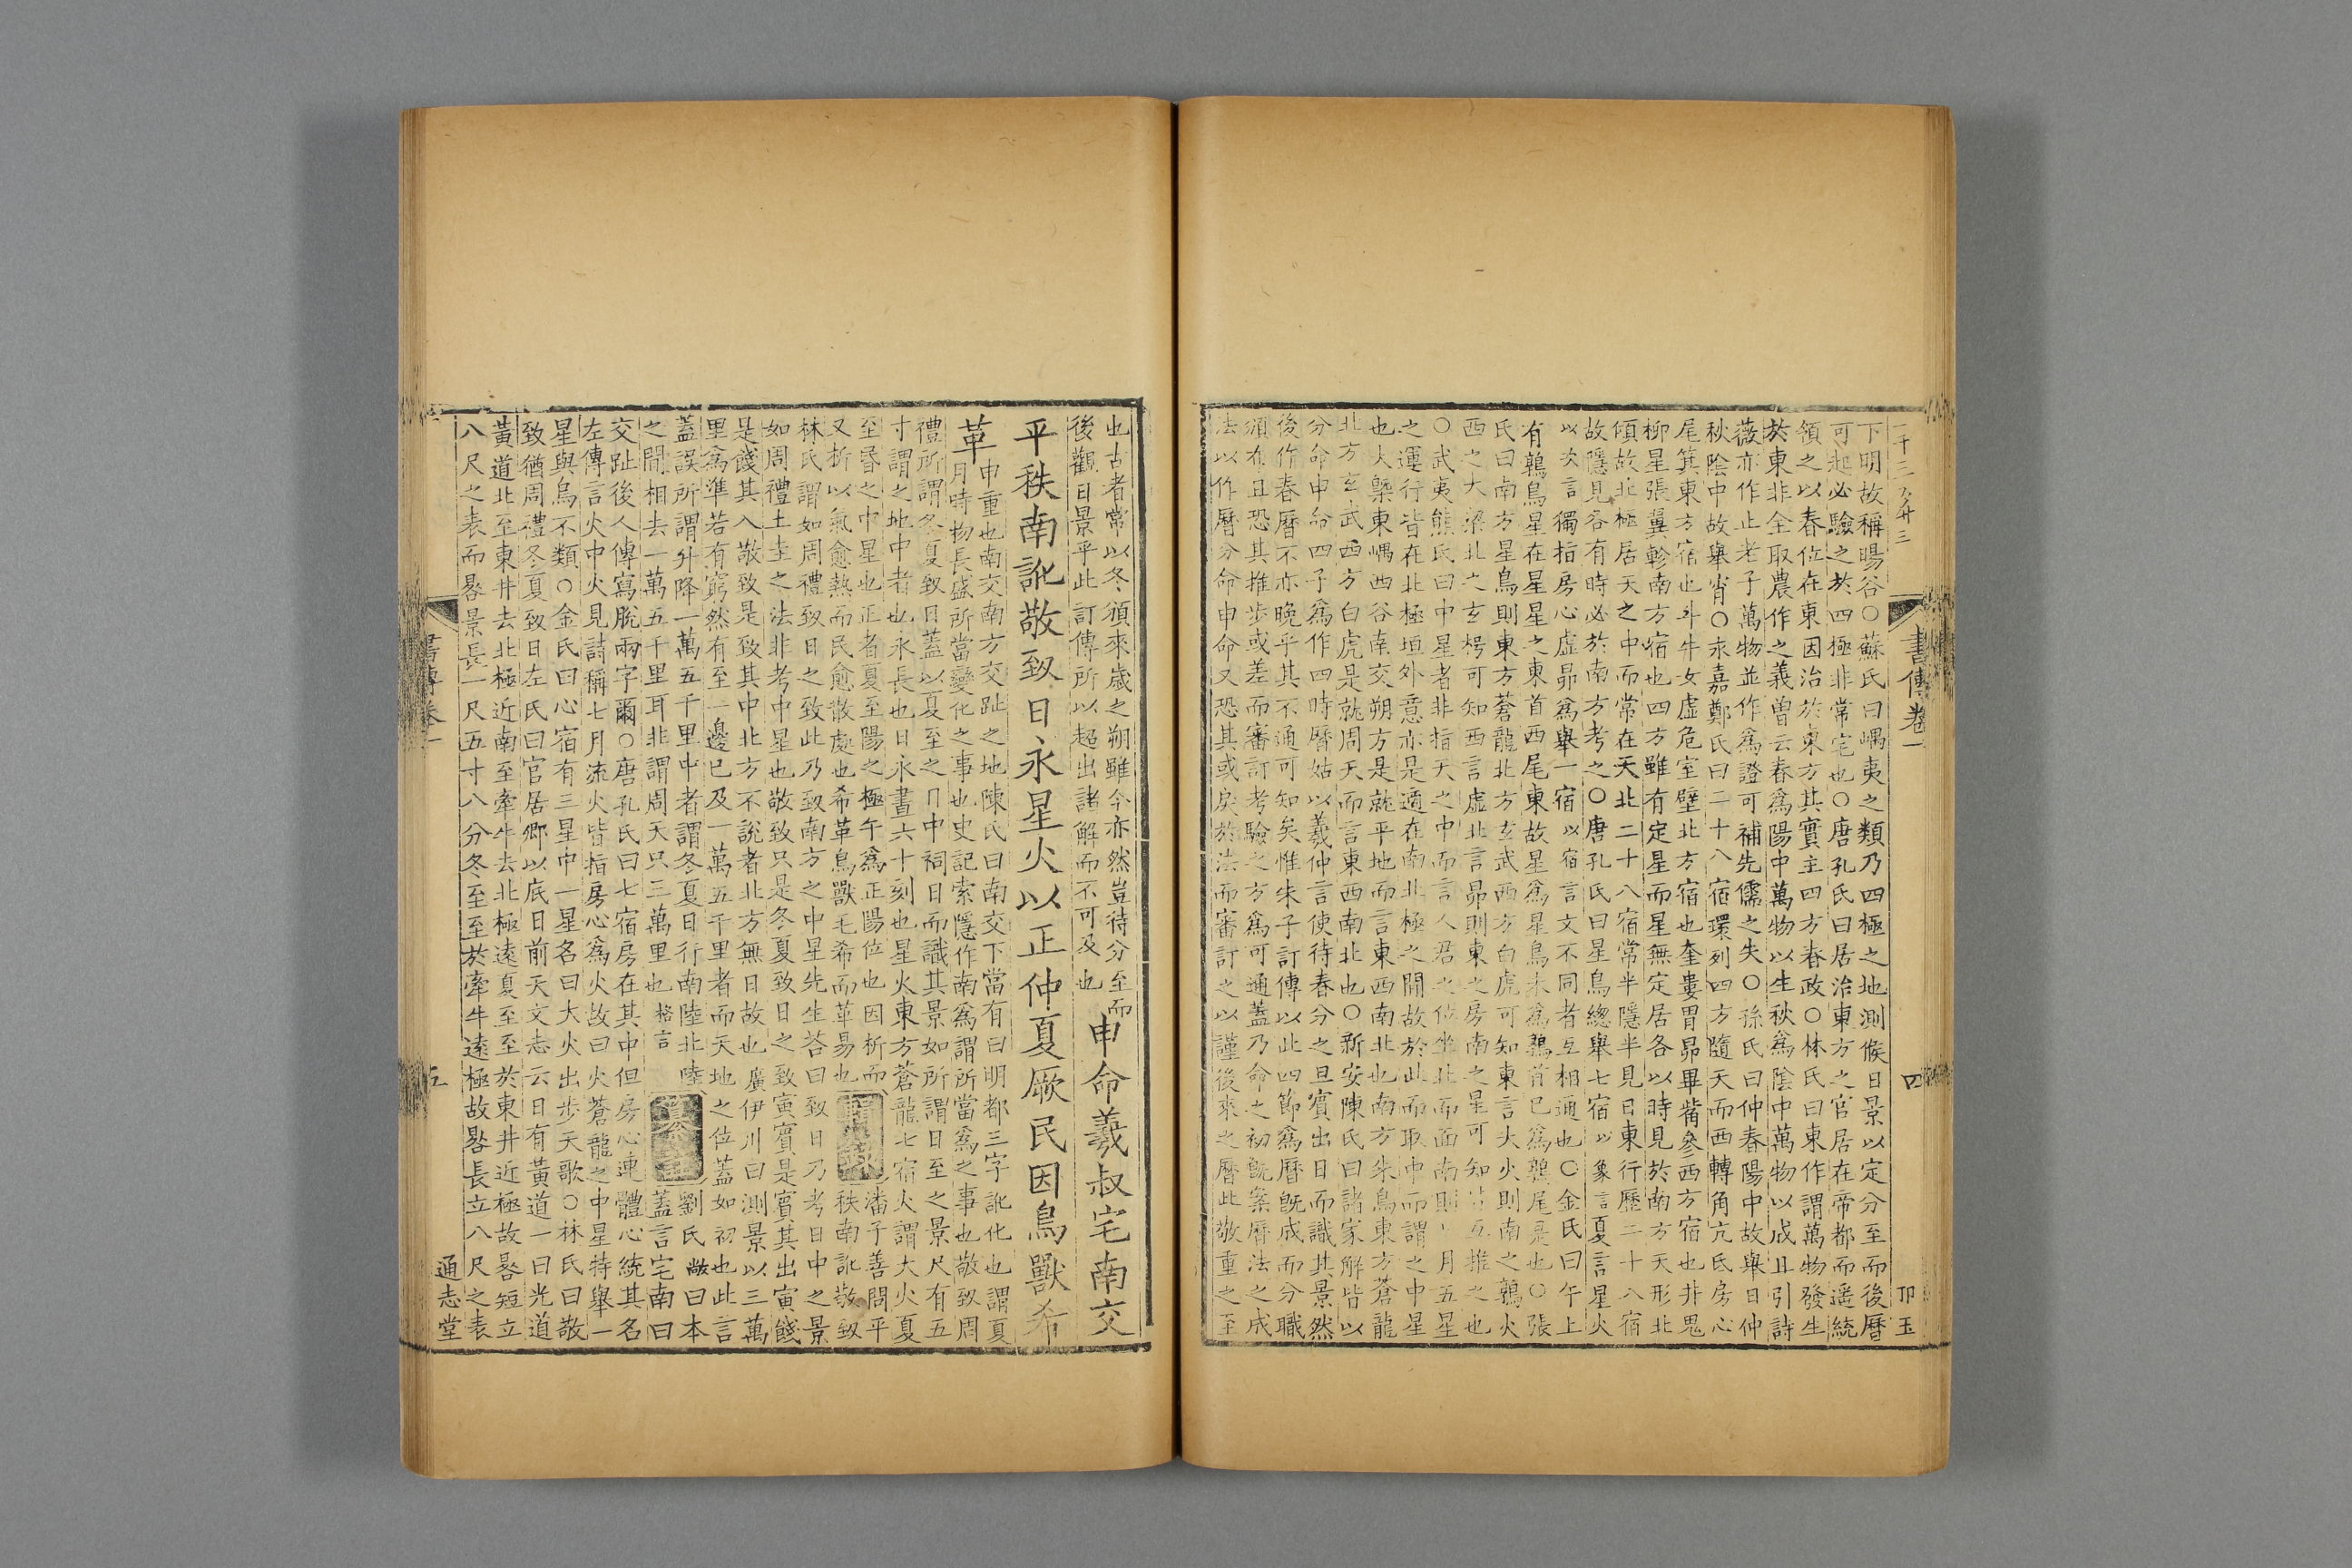 書傳卷一
四
卭玉
下明故稱暘谷○蘇氏曰嵎夷之類乃四極之地測候日景以定分至而後曆
可起必驗之於四極非常宅也○唐孔氏曰居治東方之官居在帝都而遥統
領之以春位在東因治於東方其實主四方春政○林氏曰東作謂萬物發生
於東非全取農作之義曽云春為陽中萬物以生秋為陰中萬物以成且引詩
薇亦作止老子萬物並作為證可補先儒之失○孫氏曰仲春陽中故舉日仲
秋陰中故舉宵○永嘉鄭氏曰二十八宿環列四方隨天而西轉角亢氐房心
尾箕東方宿也斗牛女虛危室壁北方宿也奎婁胃昴畢觜參西方宿也井鬼
柳星張翼軫南方宿也四方雖有定星而星無定居各以時見於南方天形北
傾故北極居天之中而常在天北二十八宿常半隱半見日東行歷二十八宿
故隱見各有時必於南方考之○唐孔氏曰星鳥總舉七宿以象言夏言星火
以次言獨指房心虛昴為舉一宿以宿言文不同者互相通也○金氏曰午上
有鶉鳥星在星星之東首西尾東故星為星鳥未為鶉首巳為鶉尾是也○張
氏曰南方星鳥則東方蒼龍北方玄武西方白虎可知東言大火則南之鶉火
西之大梁北之玄枵可知西言虛北言昴則東之房南之星可知皆互推之也
○武夷熊氏曰中星者非指天之中而言人君之位坐北而面南則 月五星
之運行皆在北極垣外意亦是適在南北極之間故於此而取中而謂之中星
也大槩東嵎西谷南交朔方是就平地而言東西南北也南方朱鳥東方蒼龍
北方玄武西方白虎是就周天而言東西南北也○新安陳氏曰諸家解皆以
分命申命四子為作四時曆姑以羲仲言使待春分之旦賓出日而識其景然
後作春曆不亦晚乎其不通可知矣惟朱子訂傳以此四節為曆既成而分職
頒布且恐其推步或差而審訂考驗之方為可通蓋乃命之初既案曆法之成
法以作曆分命申命又恐其或戾於法而審訂之以謹後來之曆此敬重之至
也古者常以冬頒來歲之朔雖今亦然豈待分至而
後觀日景乎此訂傳所以超出諸解而不可及也
申命羲叔宅南交
平秩南訛敬致日永星火以正仲夏厥民因鳥獸希
革
申重也南交南方交趾之地陳氏曰南交下當有曰明都三字訛化也謂夏
月時物長盛所當變化之事也史記索隱作南為謂所當為之事也敬致周
禮所謂冬夏致日蓋以夏至之日中祠日而識其景如所謂日至之景尺有五
寸謂之地中者也永長也日永晝六十刻也星火東方蒼龍七宿火謂大火夏
至昏之中星也正者夏至陽之極午為正陽位也因析而
又析以氣愈熱而民愈散處也希革鳥獸毛希而革易也
潘子善問平
秩南訛敬致
林氏謂如周禮致日之致此乃致南方之中星先生荅曰致日乃考日中之景
如周禮土圭之法非考中星也敬致只是冬夏致日之致寅賓是賓其出寅餞
是餞其入敬致是致其中北方不說者北方無日故也廣伊川曰測景以三萬
里為準若有窮然有至一邊已及一萬五千里者而天地之位蓋如初也此言
蓋誤所謂升降一萬五千里中者謂冬夏日行南陸北陸
之間相去一萬五千里耳非謂周天只三萬里也㮣言
劉氏敞曰本
蓋言宅南曰
交趾後人傳寫脫兩字爾○唐孔氏曰七宿房在其中但房心連體心統其名
左傳言火中火見詩稱七月流火皆指房心為火故曰火蒼龍之中星特舉一
星與鳥不類○金氏曰心宿有三星中一星名曰大火出步天歌○林氏曰敬
致猶周禮冬夏致日左氏曰官居卿以底日前天文志云日有黃道一曰光道
黃道北至東井去北極近南至牽牛去北極遠夏至至於東井近極故晷短立
八尺之表而晷景長一尺五寸八分冬至至於牽牛遠極故晷長立八尺之表
書傳卷一
五
通志堂